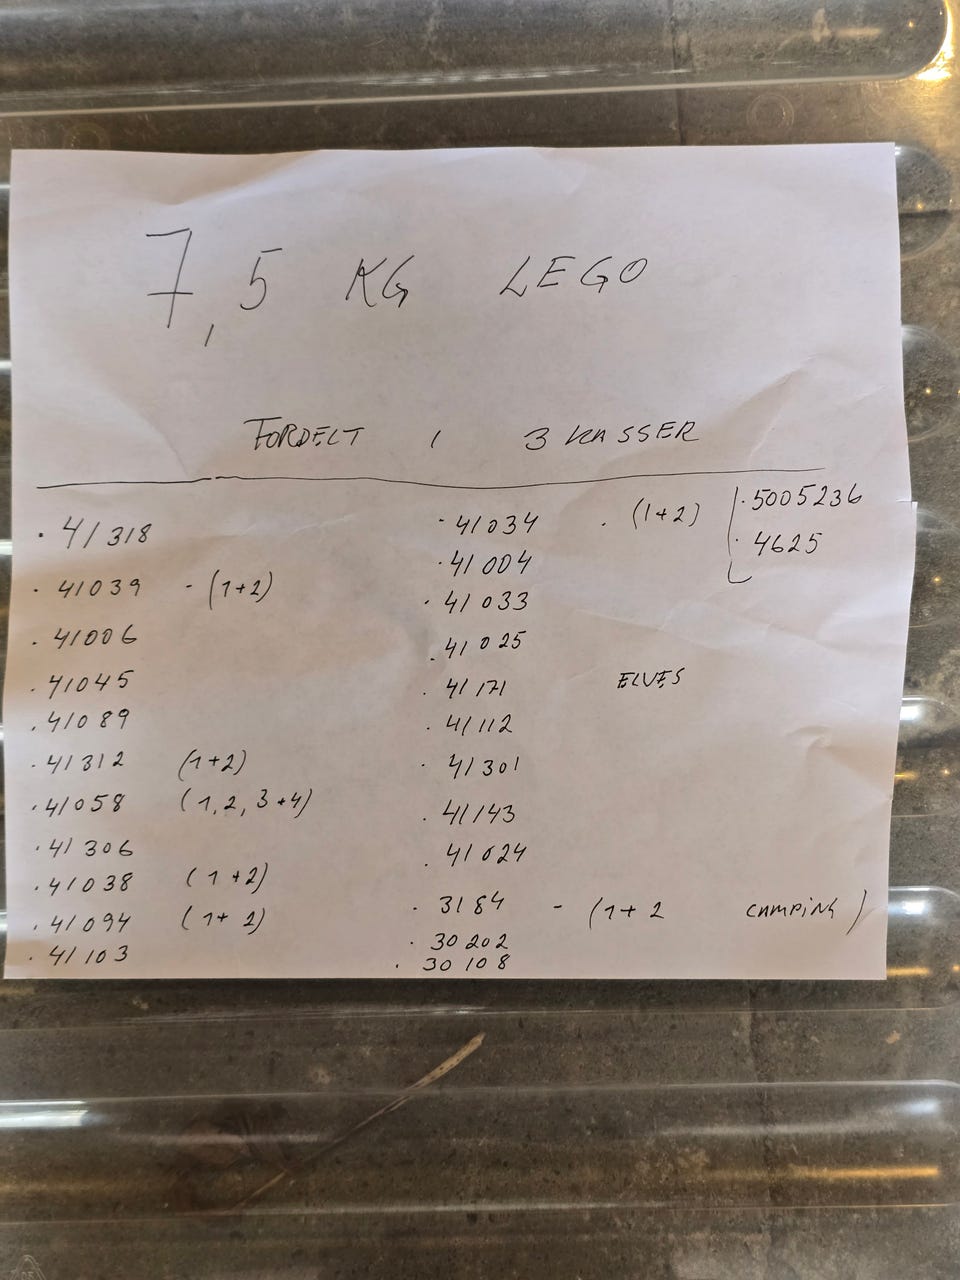 7,5 KG LEGO
FORDELT I 3 KASSER
· 41318
· 41039 - (1+2)
· 41006
· 41045
· 41089
· 41312 (1+2)
· 41058 (1, 2, 3+4)
· 41306
· 41038 (1+2)
· 41094 (1+2)
· 41103
· 41034 · (1+2)
· 41004
· 41033
· 41025
· 41171 ELVES
· 41112
· 41301
· 41143
· 41024
· 3184 - (1+2 CAMPING)
· 30202
· 30108
· 5005236
· 4625